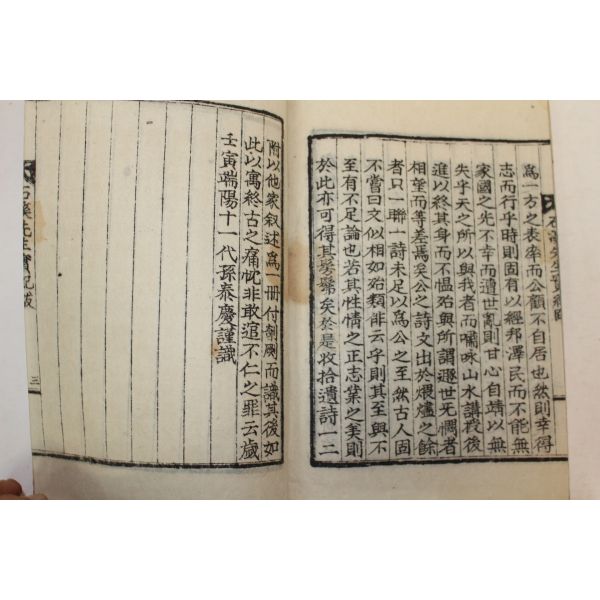 為一方之表率而公顧不自居也然則幸得
志而行乎時則固有以經邦澤民而不能無
家國之先不幸而遭世亂則甘心自靖以無
失乎天之所以與我者而嘯咏山水講授後
進以終其身而不慍殆與所謂遯世旡悶者
相望而等差焉矣公之詩文出於煨爐之餘
者只一聯一詩未足以為公之至然古人固
不嘗曰文似相如殆類俳云乎則其至與不
至有不足論也若其性情之正志業之美則
於此亦可得其髣髴矣於是收拾遺詩一二
附以他家叙述為一冊付剞劂而識其後如
此以寓終古之痛忱非敢逭不仁之罪云歲
壬寅端陽十一代孫泰慶謹識
先生實記跋
三